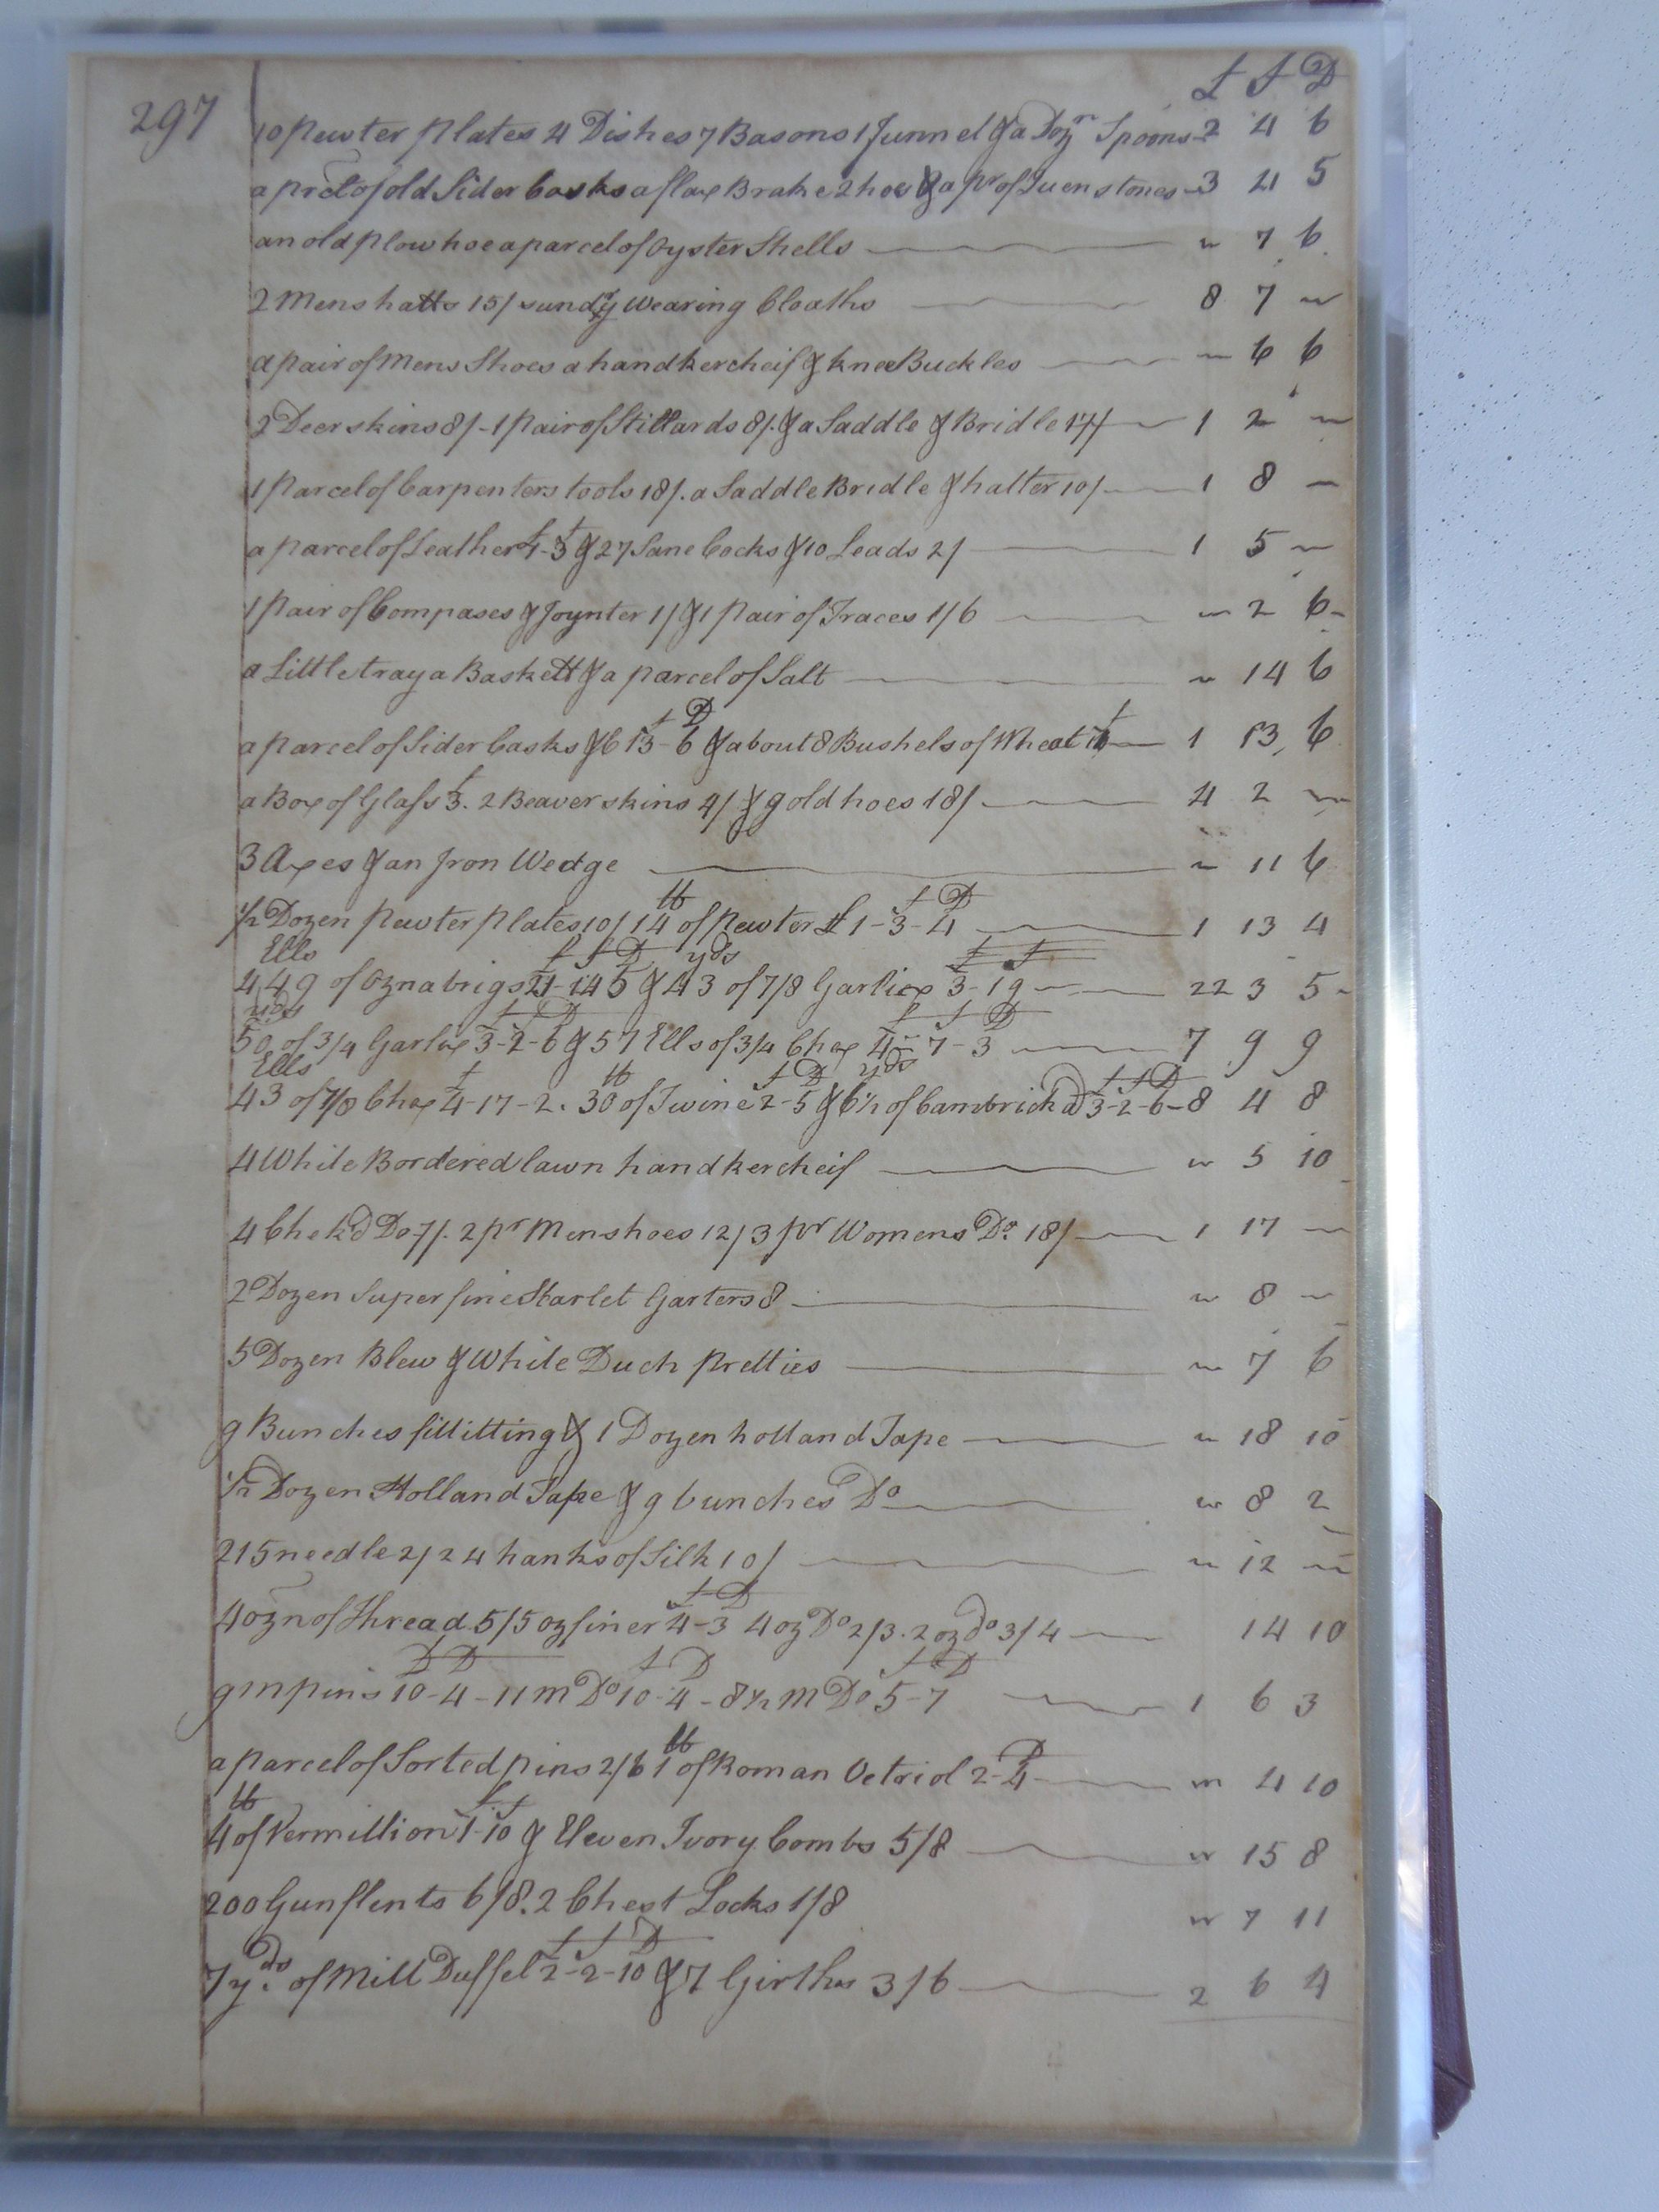 £ S D
297
10 pewter plates 4 Dishes 7 Basons 1 funnel & a Dozn Spoons - 2 4 6
a prcel of old Sider Casks a flax Brake 2 hoes & a pr of Quern stones - 3 4 5
an old plow hoe a parcel of Oyster Shells — " 7 6
2 Mens hatts 15/ sundry Wearing Cloaths — 8 7 "
a pair of Mens Shoes a handkercheif & knee Buckles — " 6 6
2 Deer skins 8/- 1 pair of Stillards 8/. & a Saddle & Bridle — 1 2 "
1 Parcel of Carpenters tools 18/. a Saddle Bridle & halter 10/ — 1 8 "
a parcel of Leather £1-3 & 27 Lane Cocks & 10 Leads 2/ — 1 5 "
1 Pair of Compases & Joynter 1/ & 1 Pair of Traces 1/6 — " 2 6
a Little tray a Baskett & a parcel of Salt — " 14 6
a parcel of Sider Casks & C 13S - 6D & about 8 Bushels of Wheat — 1 13 6
a Box of Glass £3. 2 Beaver skins 4/ & 9 old hoes 18/ — 4 2 "
3 Axes & an Iron Wedge — " 11 6
1/2 Dozen Pewter plates 10/ 14 lb of Pewter £1-3-4 — 1 13 4
449 Ells of Oznabrigs & 43 yds of 7/8 Garlix 3-19 — 22 3 5
50 yds of 3/4 Garlix 3-2-6 & 57 Ells of 3/4 Chex 4-7-3 — 7 9 9
43 Ells of 7/8 Chex £4-17-2. 30 lb of Twine 2-5 & 6 1/2 yds of Cambrick @ 3-2-6 - 8 4 8
4 White Bordered lawn handkercheif — " 5 10
4 Chek'd Do 7/. 2 pr Mens hoes 12/ 3 pr Womens Do. 18/ — 1 17 "
2 Dozen Superfine Skarlet Garters 8 — " 8 "
5 Dozen Blew & White Duch pretties — " 7 6
9 Bunches fillitting & 1 Dozen holland Tape — " 18 10
1/2 Dozen Holland Tape & 9 bunches Do — " 8 2
215 needle 2/ 24 hanks of Silk 10/ — " 12 "
4 ozn of thread 5/ 5 oz finer 4-3 4 oz Do 2/3. 2 oz do 3/4 — 14 10
9 m pins 10-4 - 11 m Do 10-4 - 8 1/2 m Do 5-7 — 1 6 3
a parcel of Sorted pins 2/6 1 lb of Roman Vetriol 2-4 — " 4 10
4 lb of Vermillion 1-10 & Eleven Ivory Combs 5/8 — " 15 8
200 Gunflints 6/8. 2 Chest Locks 1/8 " 7 11
7 yds. of Mill Duffel 2-2-10 & 7 Girths 3/6 — 2 6 4